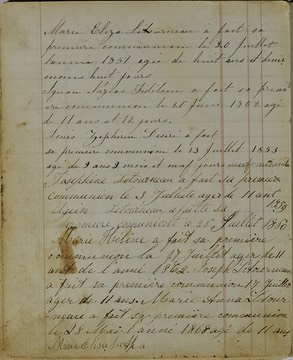 Marie Eliza Létourneau a fait sa
première communion le 20 Juillet
l'année 1851 agée de huit ans et demi
moins huit jours
a fait sa prem
communion le 25 Juin 1852 agé
de 11 ans et 12 jours.
Louis Zephirin Desiré a fait
sa premiere communion le 13 Juillet 1853
agé de 9 ans 3 mois et neuf jours
Josephine Letourneau a fait sa premier
Communion le 3 Juliete ager de 11 ant
Letourneau a faite sa 1859
premiere comunione le 28 Juillet 1860
Marie Hélène a fait sa première
communion la 17 Juillet ager de 11
ant de l'anné 1862 Joseph Letourneau
a fait sa première communion 17 Juillet
ager de 11 ans. Marie Anna Letour
neau a fait sa première communion
le 28 Mai l'anné 1868 agé de 11 ans
Marie Elisa